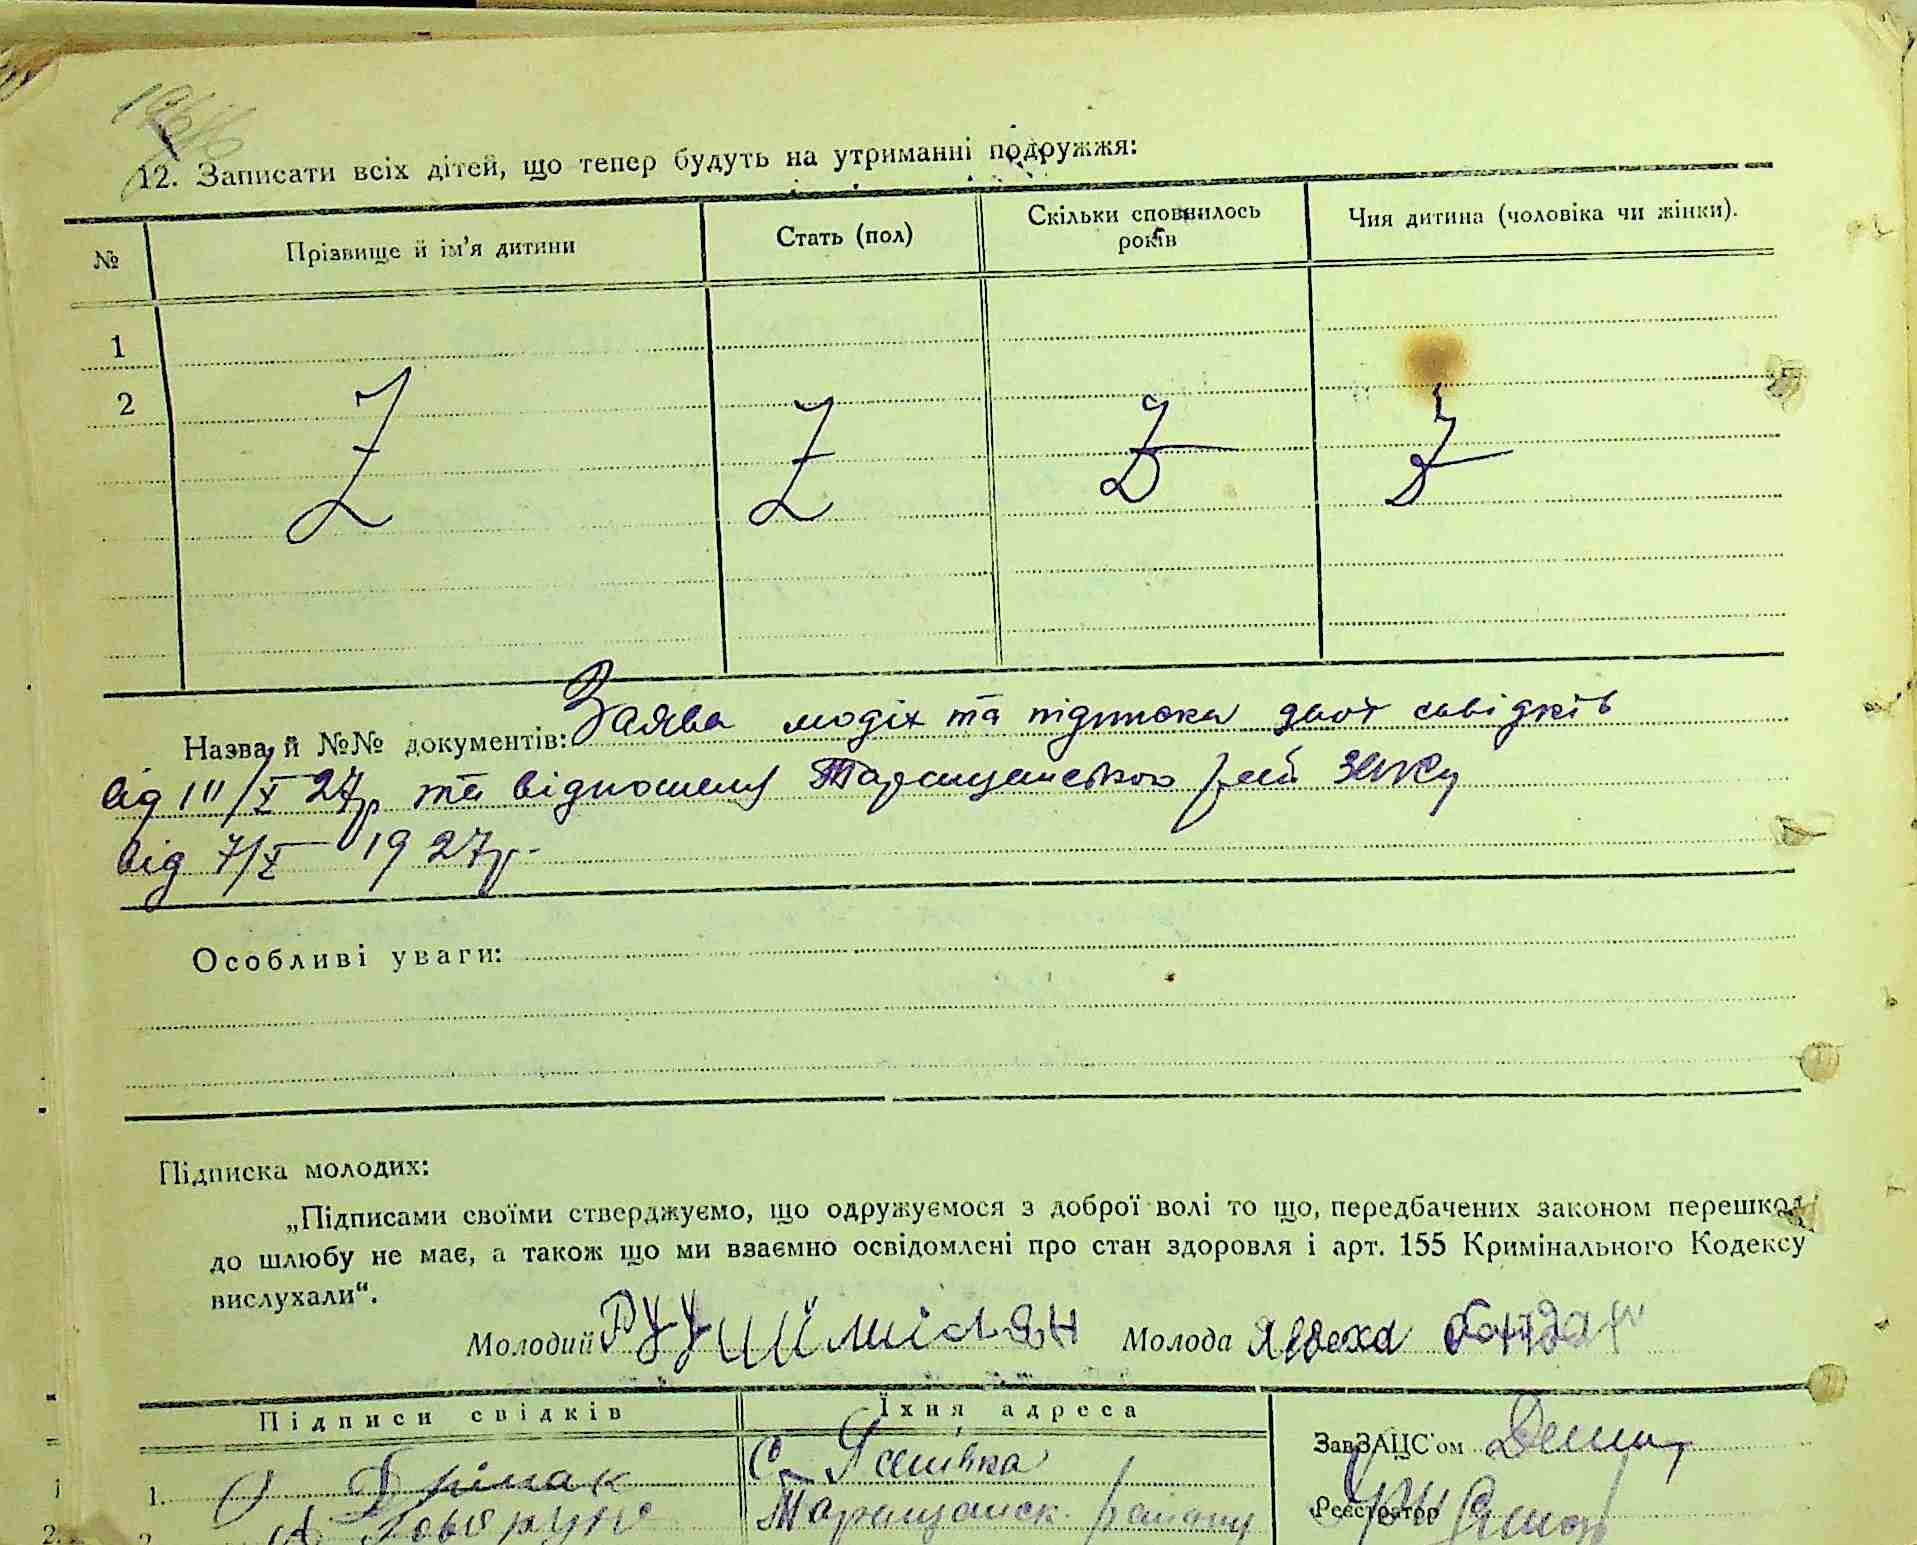 12. Записати всіх дітей, що тепер будуть на утриманні подружжя:
№ Прізвище й ім'я дитини Стать (пол) Скільки сповнилось років Чия дитина (чоловіка чи жінки).
1
2
Z Z Z Z
Назва й №№ документів: Заява модіх та підписка двох свідків
від 111/X 27р та відношену Таращанського рай загсу
від 7/X 1927р.
Особливі уваги:
Підписка молодих:
„Підписами своїми стверджуємо, що одружуємося з доброї волі то що, передбачених законом перешкод
до шлюбу не має, а також що ми взаємно освідомлені про стан здоровля і арт. 155 Кримінального Кодексу
вислухали“.
Молодий Молода Явдоха
Підписи свідків Їхня адреса
ЗавЗАЦС'ом
1. Грімак С. Ясенівка
Реєстратор
2. Таращанск. району